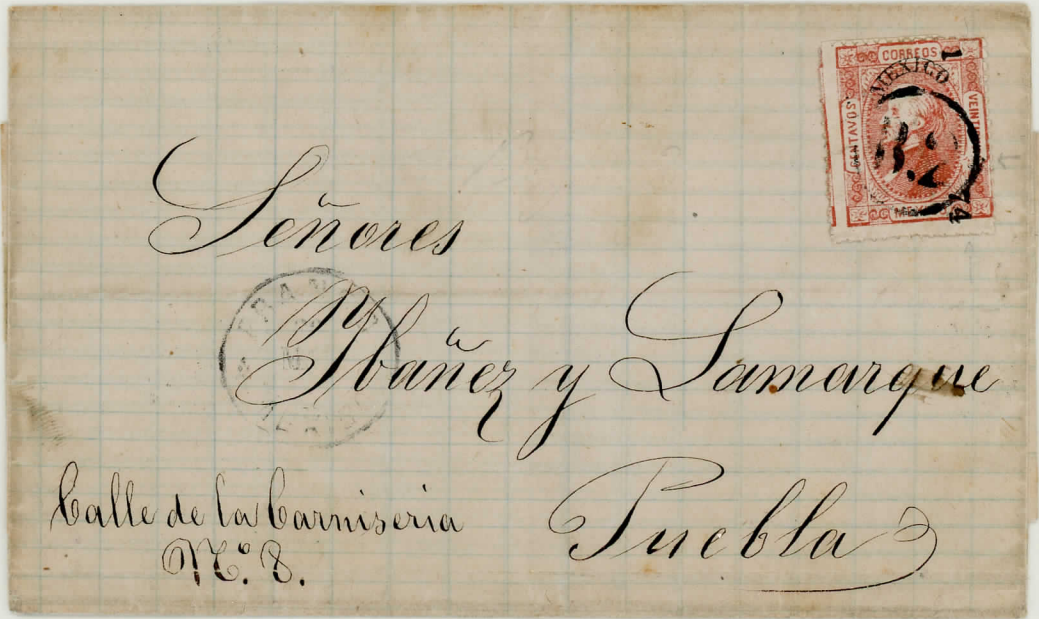 CORREOS
CENTAVOS
VEINTE
MEXICO
74
Señores
Ibáñez y Lamarque
Puebla
Calle de la Carniseria
Nº. 8.